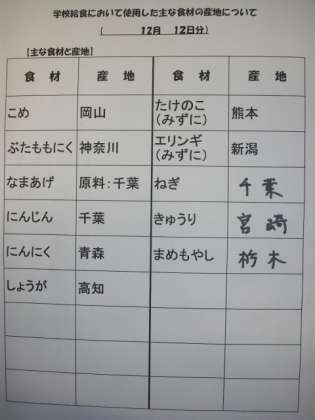 学校給食において使用した主な食材の産地について
（　12月　12日分）
【主な食材と産地】
食　材　産　地　食　材　産　地
こめ　岡山　たけのこ（みずに）　熊本
ぶたももにく　神奈川　エリンギ（みずに）　新潟
なまあげ　原料：千葉　ねぎ　千葉
にんじん　千葉　きゅうり　宮崎
にんにく　青森　まめもやし　栃木
しょうが　高知